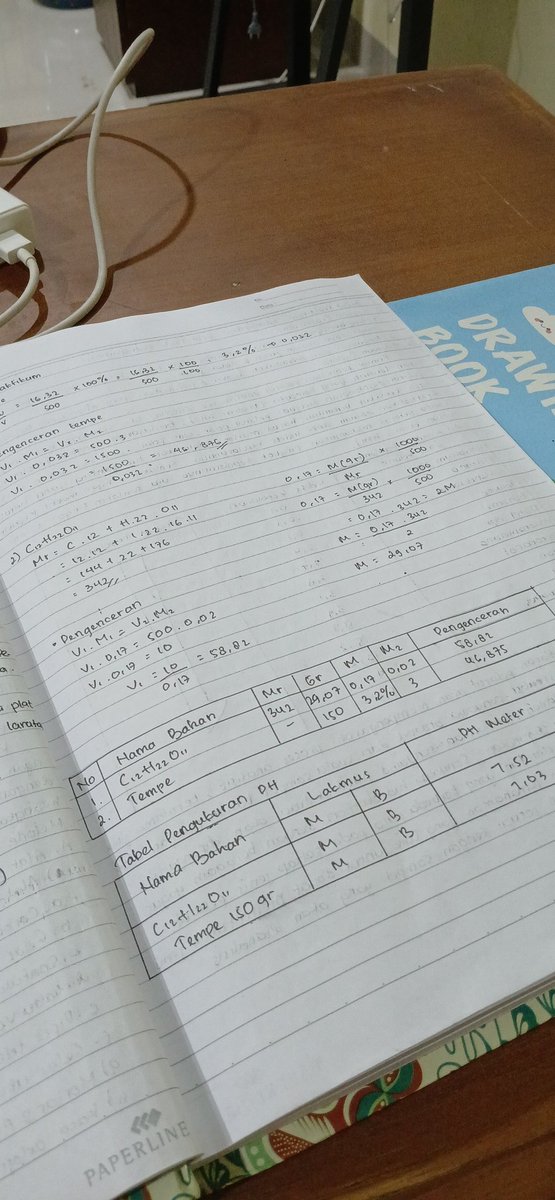 = 16,32 / 500 x 100% = 16,32 / 500 x 100 / 100 = 3,2% → 0,032
tempe
V1 . M1 = V2 . M2
V1 . 0,032 = 500 . 3
V1 . 0,032 = 1500
= 1500 / 0,032 = 46,875 //
2) C12H22O11
Mr = C . 12 + H . 22 . O11
= 12 . 12 + 1 . 22 . 16 . 11
= 144 + 22 + 176
= 342 //
0,17 = M(gr) / Mr x 1000 / 500
0,17 = M(gr) / 342 x 1000 / 500
= 0,17 . 342 = 2M
M = 0,17 . 342 / 2
M = 29,07
• Pengenceran
V1 . M1 = V2 . M2
V1 . 0,17 = 500 . 0,02
V1 . 0,17 = 10
V1 = 10 / 0,17 = 58,82
No Nama Bahan Mr Gr M M2 Pengenceran
1. C12H22O11 342 29,07 0,17 0,02 58,82
2. Tempe - 150 3,2% 3 46,875
Tabel Pengukuran PH
Nama Bahan Lakmus PH Meter
M B
C12H22O11 M B 7,52
Tempe 150 gr M B 7,03
plat
PAPERLINE
DRAW
BOOK